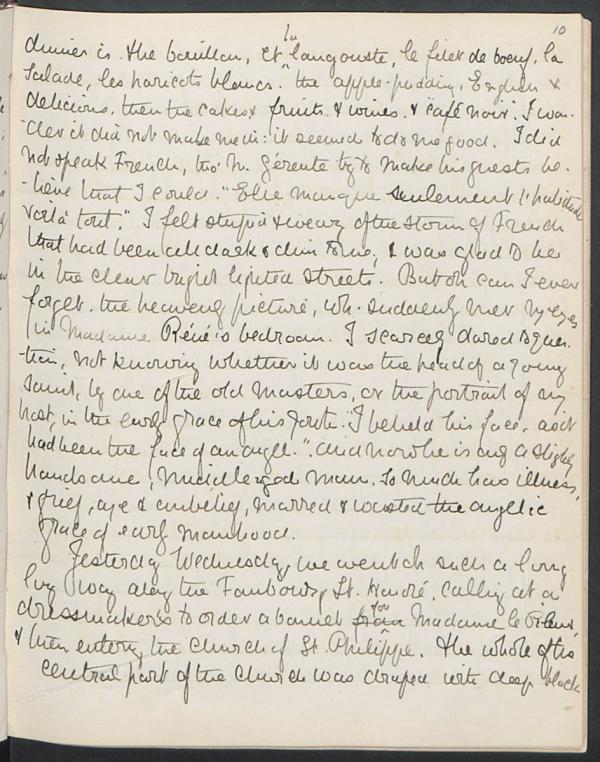 10
dinner is the bouillon, et la langouste, le filet de boeuf, la
Salade, les haricots blancs." the apple-pudding, English &
delicious, then the cakes & fruits & wines, & "café noir". I won-
der it did not make me ill: it seemed to do me good. I did
not speak French, tho' M. gérente try to make his guests be-
-lieve that I could. "Elle manque seulement l'habitude
voilà tout." I felt stupid & weary of the storm of French
that had been all dark & dim to me, & was glad to be
in the clear bright lighted streets. But oh can I ever
forget the heavenly picture, wh. suddenly met my eyes
in Madame Réné's bedroom. I scarcely dared to ques-
tion, not knowing whether it was the head of a young
saint, by one of the old Masters, or the portrait of my
host, in the early grace of his youth. "I beheld his face, as it
had been the face of an angel." and now he is only a slightly
handsome, middle aged man. So much has illness,
& grief, age & unbelief, marred & wasted the angelic
grace of early manhood.
Yesterday Wednesday, we went oh such a long
long way along the Faubourg St. Honoré, calling at a
dressmaker's to order a bonnet for Madame le
& then entering the Church of St. Philippe. The whole of the
central part of the Church was draped with deep black